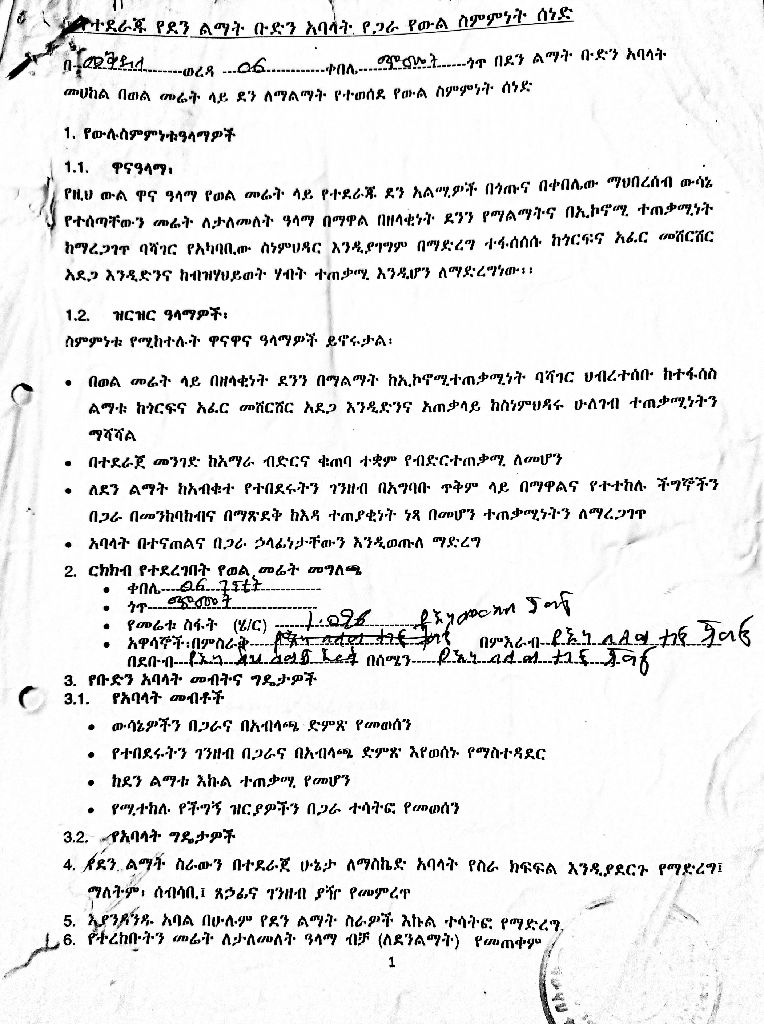 የተደራጁ የደን ልማት ቡድን አባላት የጋራ የውል ስምምነት ሰነድ
በ መቅደላ ወረዳ 06 ቀበሌ ጎጥ በደን ልማት ቡድን አባላት
መሀከል በወል መሬት ላይ ደን ለማልማት የተወሰደ የውል ስምምነት ሰነድ
1. የውሉስምምነቱዓላማዎች
1.1. ዋናዓላማ፡
የዚህ ውል ዋና ዓላማ የወል መሬት ላይ የተደራጁ ደን አልሚዎች በጎጡና በቀበሌው ማህበረሰብ ውሳኔ
የተሰጣቸውን መሬት ለታለመለት ዓላማ በማዋል በዘላቂነት ደንን የማልማትና በኢኮኖሚ ተጠቃሚነት
ከማረጋገጥ ባሻገር የአካባቢው ስነምህዳር እንዲያገግም በማድረግ ተፋሰሰሱ ከጎርፍና አፈር መሸርሸር
አደጋ እንዲድንና ከብዝሃህይወት ሃብት ተጠቃሚ እንዲሆን ለማድረግነው፡፡
1.2. ዝርዝር ዓላማዎች፡
ስምምነቱ የሚከተሉት ዋናዋና ዓላማዎች ይኖሩታል፡
• በወል መሬት ላይ በዘላቂነት ደንን በማልማት ከኢኮኖሚተጠቃሚነት ባሻገር ህብረተሰቡ ከተፋሰስ
ልማቱ ከጎርፍና አፈር መሸርሸር አደጋ እንዲድንና አጠቃላይ ከስነምህዳሩ ሁለገብ ተጠቃሚነትን
ማሻሻል
• በተደራጀ መንገድ ከአማራ ብድርና ቁጠባ ተቋም የብድርተጠቃሚ ለመሆን
• ለደን ልማት ከአብቁተ የተበደሩትን ገንዘብ በአግባቡ ጥቅም ላይ በማዋልና የተተከሉ ችግኞችን
በጋራ በመንከባከብና በማጽደቅ ከእዳ ተጠያቂነት ነጻ በመሆን ተጠቃሚነትን ለማረጋገጥ
• አባላት በተናጠልና በጋራ ኃላፊነታቸውን እንዲወጡለ ማድረግ
2. ርክክብ የተደረገበት የወል መሬት መግለጫ
• ቀበሌ 06
• ጎጥ
• የመሬቱ ስፋት (ሄ/ር)
• አዋሳኞች፡በምስራቅ በምእራብ
በደቡብ በሰሜን
3. የቡድን አባላት መብትና ግዴታዎች
3.1. የአባላት መብቶች
• ውሳኔዎችን በጋራና በአብላጫ ድምጽ የመወሰን
• የተበደሩትን ገንዘብ በጋራና በአብላጫ ድምጽ እየወሰኑ የማስተዳደር
• ከደን ልማቱ እኩል ተጠቃሚ የመሆን
• የሚተከሉ የችግኝ ዝርያዎችን በጋራ ተሳትፎ የመወሰን
3.2. የአባላት ግዴታዎች
4. የደን ልማት ስራውን በተደራጀ ሁኔታ ለማስኬድ አባላት የስራ ክፍፍል እንዲያደርጉ የማድረግ፤
ማለትም፡ ሰብሳቢ፤ ጸኃፊና ገንዘብ ያዥ የመምረጥ
5. እያንዳንዱ አባል በሁሉም የደን ልማት ስራዎች እኩል ተሳትፎ የማድረግ
6. የተረከቡትን መሬት ለታለመለት ዓላማ ብቻ (ለደንልማት) የመጠቀም
1